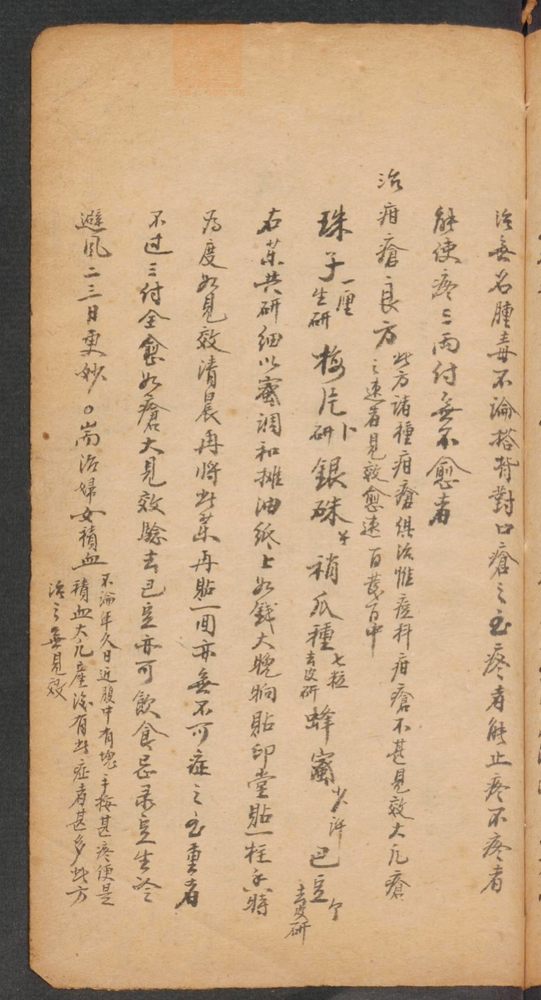 治無名腫毒不論搭背對口瘡之至疼者能止疼不疼者
能使疼二兩付無不愈者
治疳瘡良方
此方諸種疳瘡俱治惟痘科疳瘡不甚見效大凡瘡
之速者見效愈速百發百中
珠子一厘生研 梅片卜研 銀硃 稍瓜種七粒去皮研 蜂蜜少許 巴豆去皮研
右藥共研細以蜜調和攤油紙上如錢大晚晌貼印堂貼一柱香時
為度如見效清晨再將此藥再貼一回亦無不可症之至重者
不过三付全愈如瘡大見效驗去巴豆亦可飲食忌菉豆生冷
避風二三日更妙○耑治婦女積血
不論年久日近腹中有塊手按甚疼便是
積血大凡產後有此症者甚多此方
治之無見效